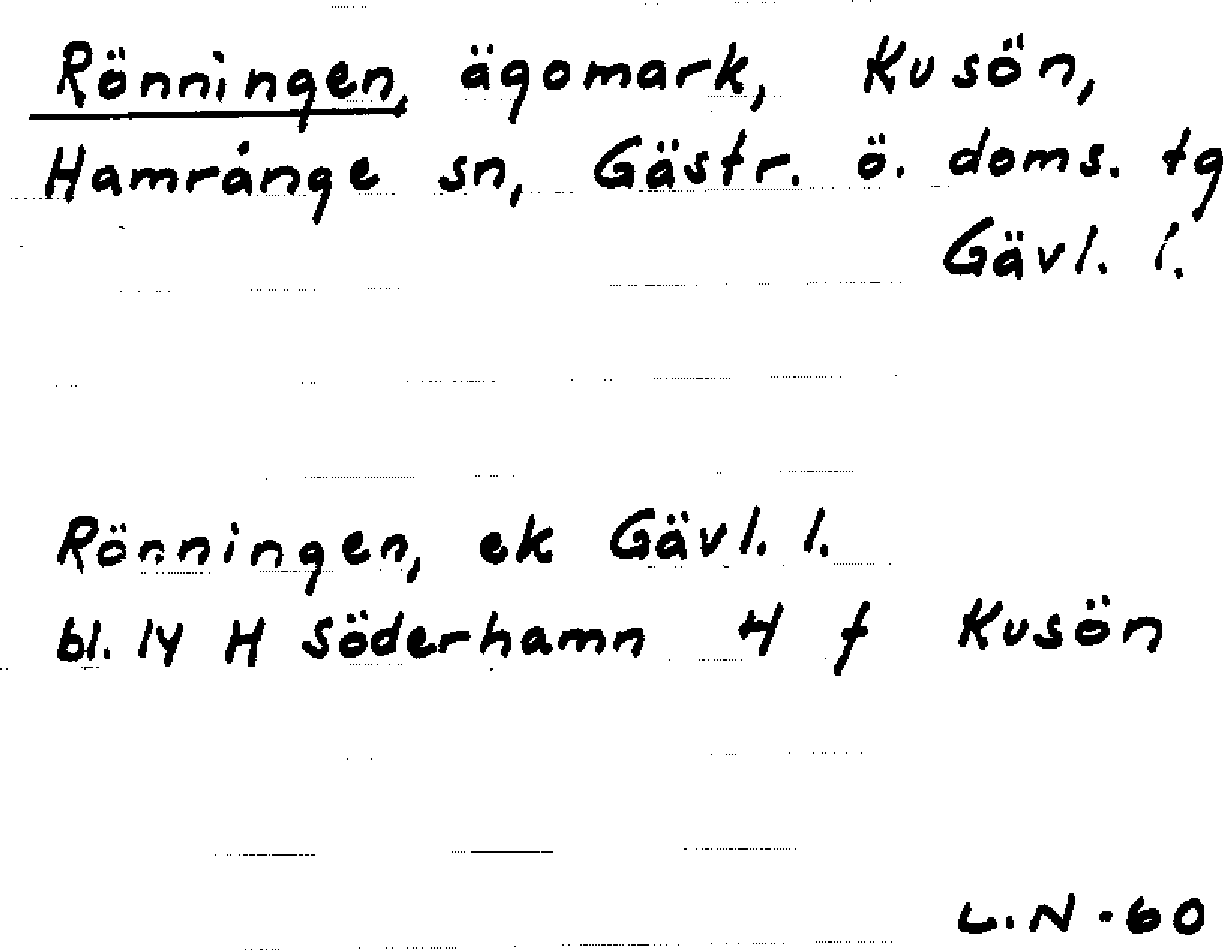 Rönningen, ägomark, Kusön,
Hamrånge sn, Gästr. ö. doms. tg
Gävl. l.
Rönningen, ek Gävl. l.
bl. 14 H Söderhamn 4 f Kusön
L.N -60